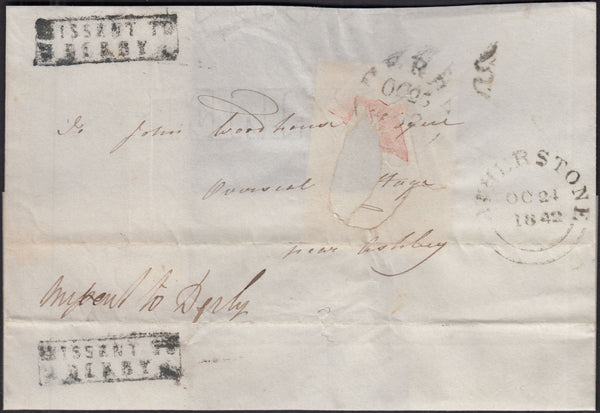 MISSENT TO
DERBY
OC 25
To John Woodhouse Esquire
Overseal
near Ashby
ATHERSTONE
OC 24
1842
Missent to Derby
MISSENT TO
DERBY